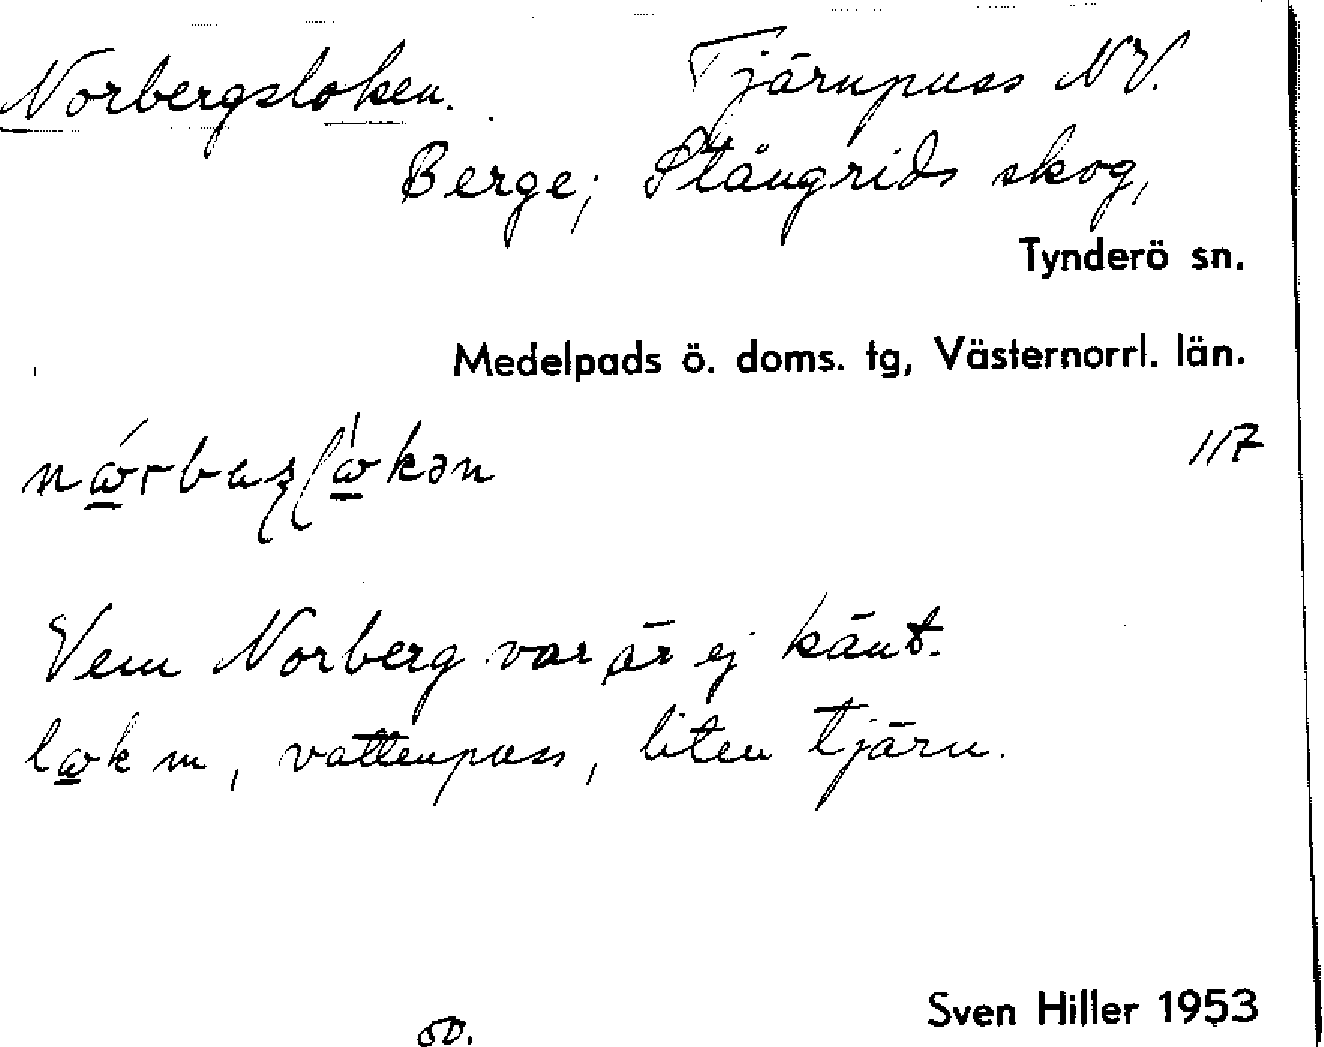 Norbergsloken. Tjärnpuss NV.
Berge; Stångrids skog,
Tynderö sn.
Medelpads ö. doms. tg, Västernorrl. län.
117
Vem Norberg var är ej känt.
m, vattenpuss, liten tjärn.
Sven Hiller 1953